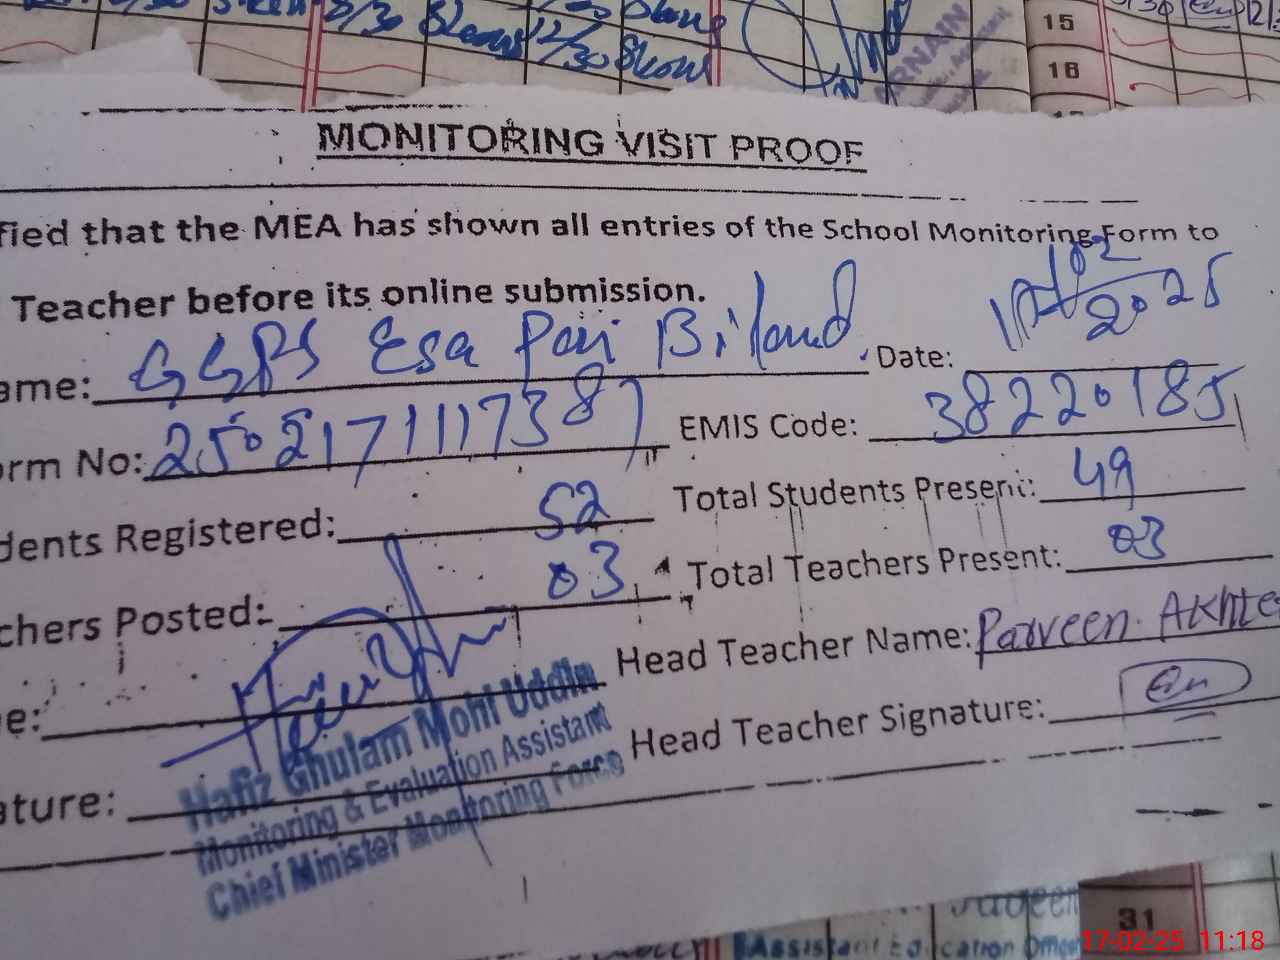 15
16
MONITORING VISIT PROOF
fied that the MEA has shown all entries of the School Monitoring Form to
Teacher before its online submission.
ame: GGPS Esa Pari Biland Date: 17-02-2025
orm No: 250217111738 EMIS Code: 38220185
dents Registered: 52 Total Students Present: 49
chers Posted: 03 Total Teachers Present: 03
e: Head Teacher Name: Parveen Akhte
ature: Head Teacher Signature:
Hafiz Ghulam Mohi Uddin
Monitoring & Evaluation Assistant
Chief Minister Monitoring Force
31
Assistant Education Officer
17-02-25 11:18